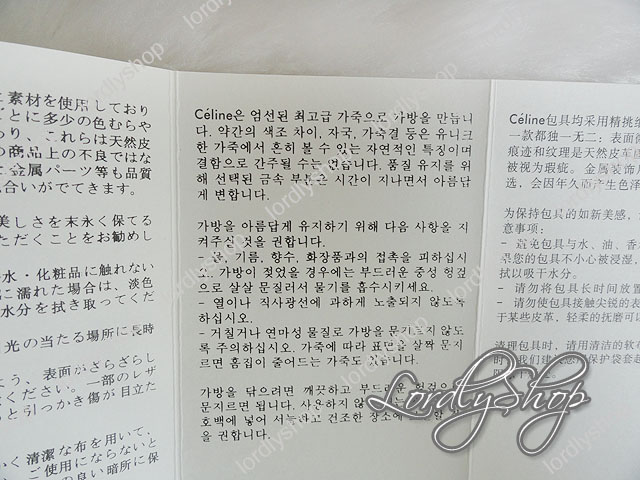 素材を使用しており
ごとに多少の色むらや
り、これらは天然皮
の商品上の不良ではな
金属パーツ等も品質
色合いがでてきます。
美しさを末永く保てる
ただくことをお勧めし
水・化粧品に触れない
に濡れた場合は、淡色
水分を拭き取ってくだ
光の当たる場所に長時
よう、表面がざらざらし
ください。一部のレザ
ると引っかき傷が目立た
く清潔な布を用いて、
ご使用にならないと
の良い暗所に保
Céline은 엄선된 최고급 가죽으로 가방을 만듭니
다. 약간의 색조 차이, 자국, 가죽결 등은 유니크
한 가죽에서 흔히 볼 수 있는 자연적인 특징이며
결함으로 간주될 수는 없습니다. 품질 유지를 위
해 선택된 금속 부분은 시간이 지나면서 아름답
게 변합니다.
가방을 아름답게 유지하기 위해 다음 사항을 지
켜주실 것을 권합니다.
- 물, 기름, 향수, 화장품과의 접촉을 피하십시
오. 가방이 젖었을 경우에는 부드러운 중성 헝겊
으로 살살 문질러서 물기를 흡수시키세요.
- 열이나 직사광선에 과하게 노출되지 않도록
하십시오.
- 거칠거나 연마성 물질로 가방을 문지르지 않도
록 주의하십시오. 가죽에 따라 표면을 살짝 문지
르면 흠집이 줄어드는 가죽도 있습니다.
가방을 닦으려면 깨끗하고 부드러운 헝겊으로
문지르면 됩니다. 사용하지 않
호백에 넣어 서늘하고 건조한 장소에
을 권합니다.
Céline包具均采用精挑细
一款都独一无二：表面
痕迹和纹理是天然皮革
被视为瑕疵。金属装饰
选，会因年久而产生色泽
为保持包具的如新美感，
意事项：
- 避免包具与水、油、香
果您的包具不小心被浸湿，
拭以吸干水分。
- 请勿将包具长时间放置
- 请勿使包具接触尖锐的表
于某些皮革，轻柔的抚磨可以
清理包具时，请用清洁的软布
时，我们建议您将保护袋套
阴
LordlyShop
lordlyshop